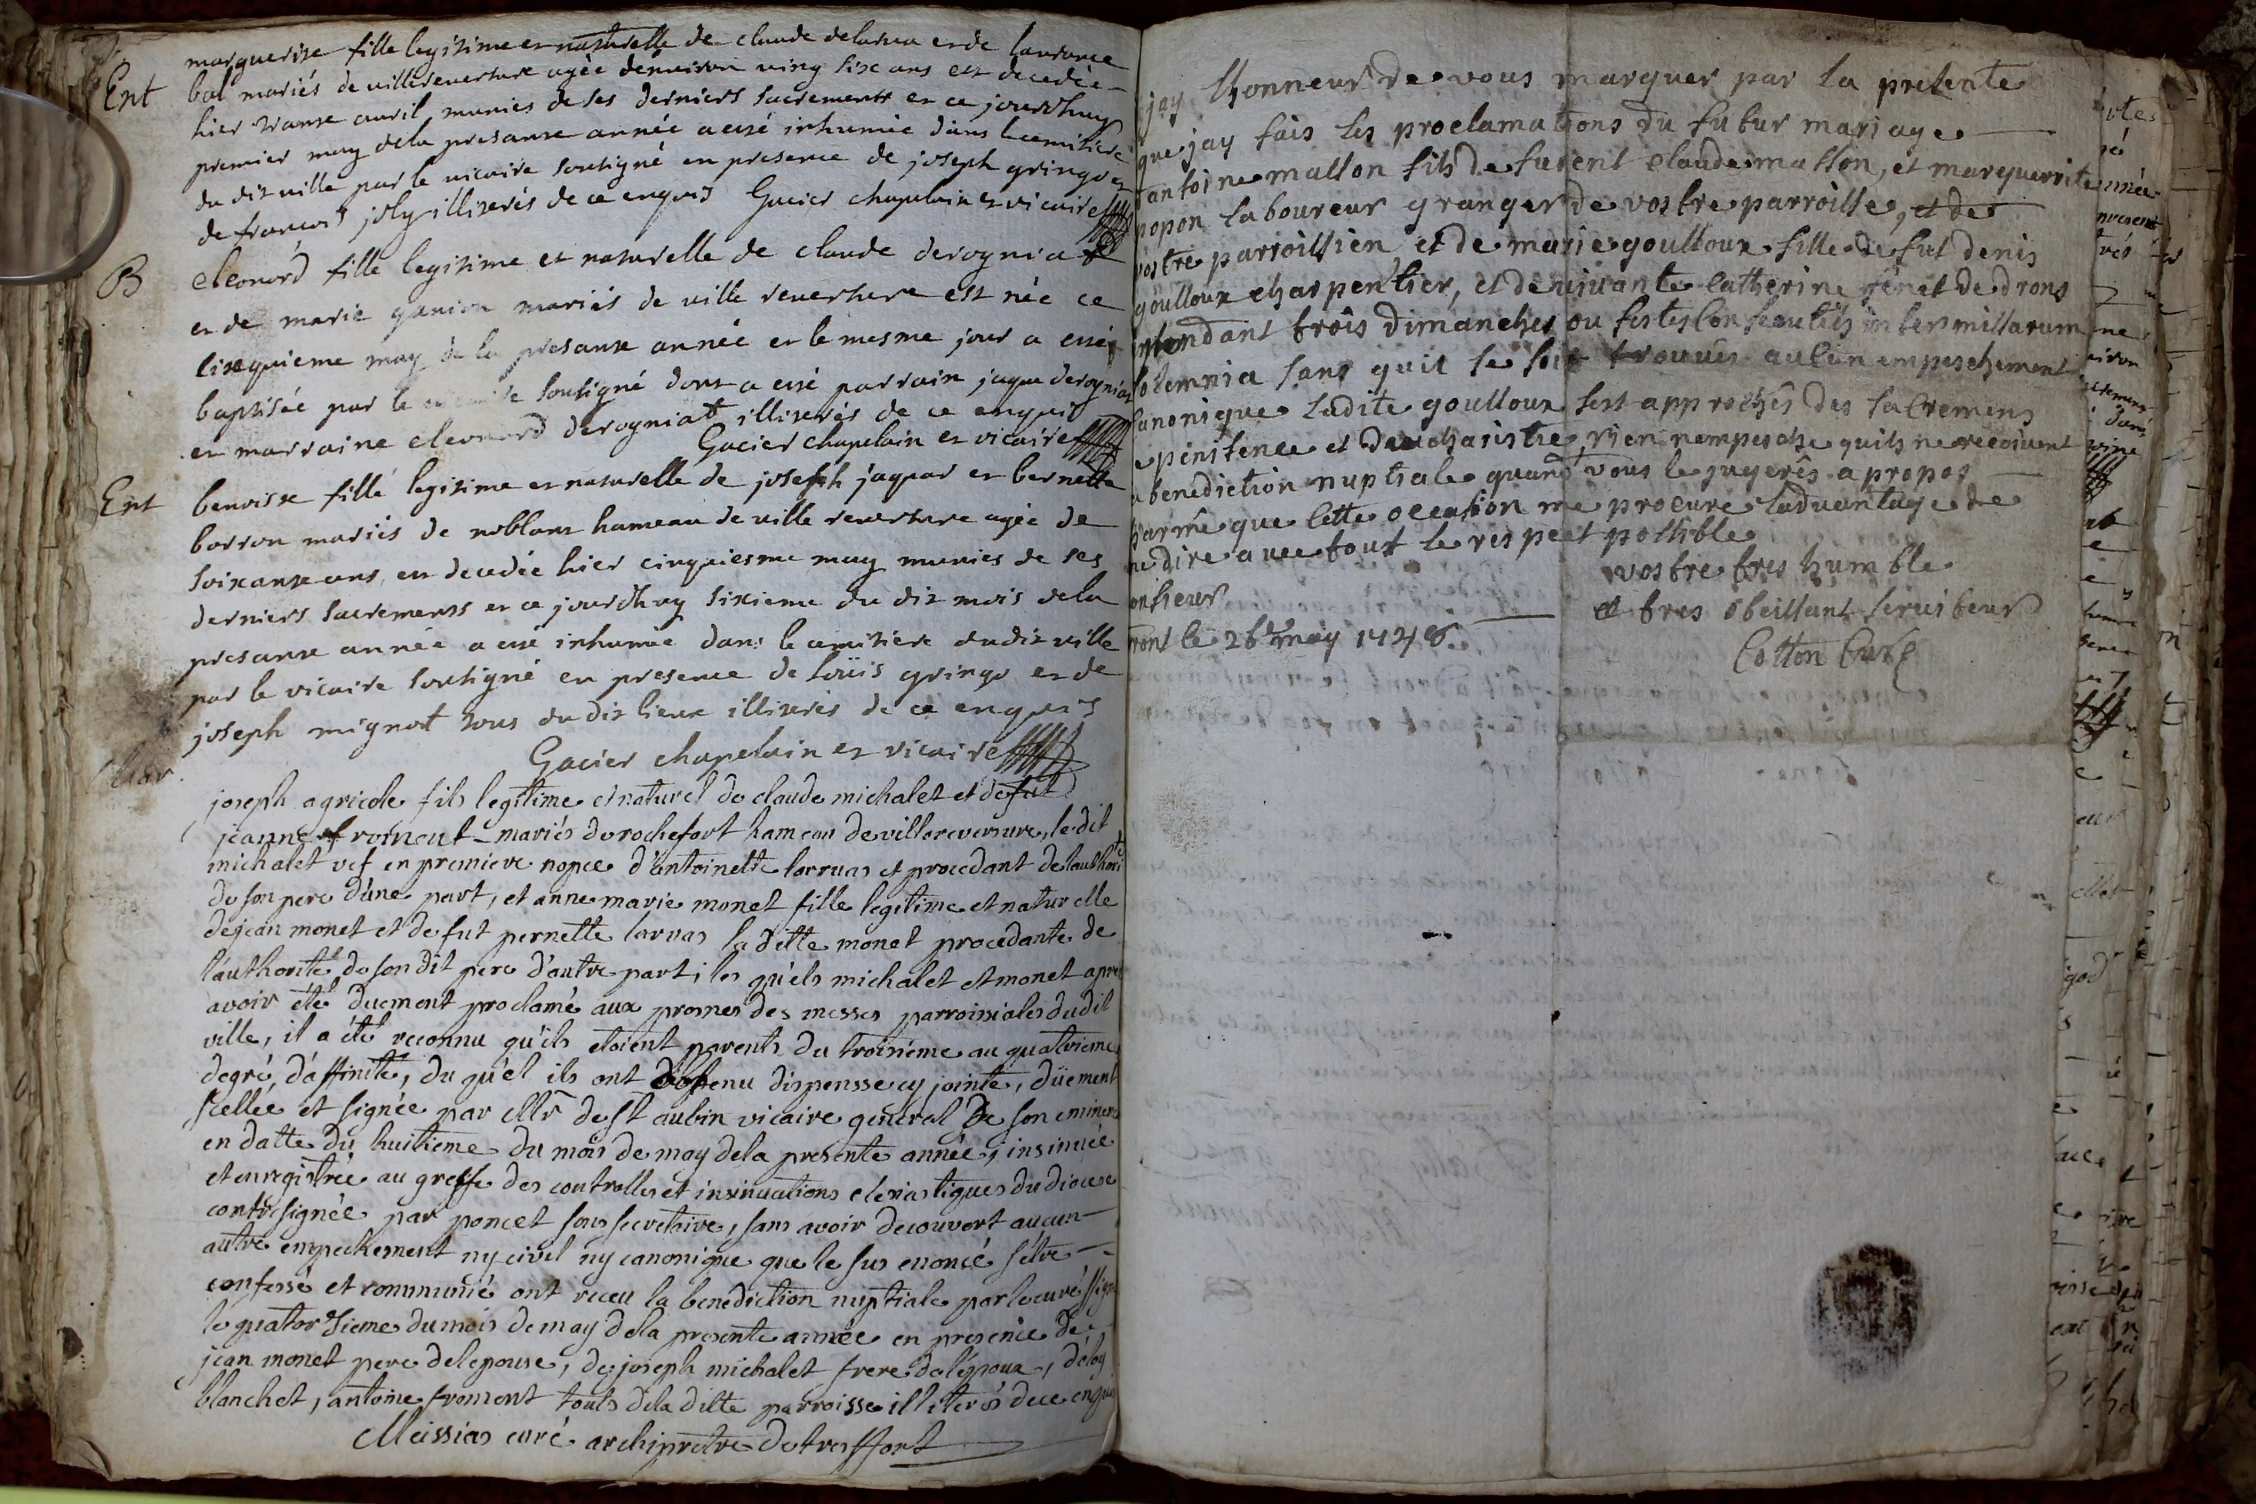 marguerite fille legitime et naturelle de claude delarua et de laurance
Ent bal mariés de villereversure agée denviron ving sixe ans est decedée
hier trante auril munies de ses derniers sacrements et ce jourdhuy
premier may dela presante année a esté inhumée dans le cemitiere
du dit ville par le vicaire soussigné en presence de joseph gringoz
de francois joly illiterés de ce enquis Gacier chapelain et vicaire
B eleonord fille legitime et naturelle de claude derognia
et de marie ganion mariés de ville reuersure est née ce
cinquieme may de la presante année et le mesme jour a esté
baptisée par le soussigné dont a esté parrain jaque derogniat
et marraine eleonord derogniat illiterés de ce enquis
Gacier chapelain et vicaire
Ent benoitte fille legitime et naturelle de joseph jaquar et bernette
borron mariés de noblans hameau de ville reuersure agée de
soixante ans est decedée hier cinquiesme may munies de ses
derniers sacrements et ce jourdhuy sixieme du dit mois dela
presante année a esté inhumée dans le cemitiere du dit ville
par le vicaire soussigné en presence de loüis gringo et de
joseph mignot tous du dit lieux illiterés de ce enquis
Gacier chapelain et vicaire
Mar. joseph agricole fils legitime et naturel de claude michalet et de fut
jeanne froment mariés de rochefort hameau devillereversure, le dit
michalet vef en premiere nopce d'antoinette larruas et procedant de lauthorité
de son pere d'une part, et anne marie monet fille legitime et naturelle
de jean monet et de fut pernette larvas la ditte monet procedante de
l'authorité de son dit pere d'autre part; les qu'els michalet et monet apres
avoir été duement proclamé aux prosnes des messes parroissiales dudit
ville, il a été reconnu qu'ils etoient parents du troisieme au quatrieme
degré, d'affinité, du qu'el ils ont obtenu dispensse cy jointe, düement
scellée et signée par Mr de st aubin vicaire general de son eminence
en datte du huitieme du mois de may dela presente année, insinuée
et enregistrée au greffe des controlles et insinuations eclesiastiques du diocese
contresignée par poncet son secretaire, sans avoir decouvert aucun
autre empechement ny civil ny canonique que le sus enoncé s'etre
confessé et communié ont receu la benediction nuptiale par le curé ssigné
le quatorsieme du mois de may dela presente année en presence de
jean monet pere delepouse, de joseph michalet frere de lépoux, d'eloy
blanchet, antoine froment touts dela ditte parroisse illiterés de ce enquis
Meissias curé archiprêtre de treffort
jay lhonneur de vous marquer par la presente
que jay fais les proclamations du futur mariage
dantoine masson fils de fusent claude masson, et marguerrite
popon laboureur granger de vostre parroisse, et de
vostre parroissien et de marie goulloux fille de fut denis
goulloux charpentier, et de vivante catherine renet de drons
pendant trois dimanches ou festes consecutifs intermissarum
solemnia sans quil se soit trouués aucun empeschement
canonique ladite goulloux sest approchés des sacremens
de penitence et deucharistie, rien nempesche quils ne recoivent
la benediction nuptiale quand vous le jugerés a propos
charmé que cette occasion me procure ladvantage de
me dire avec tout le respect possible
onsieur
vostre tres humble
et tres obeissant serviteur
ront le 26 may 1748.
Cotton Curé